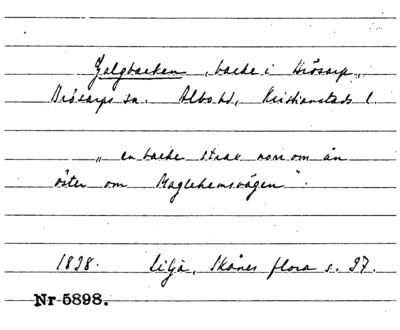 Galgbacken, backe i Brösarp,
Brösarps sn. Albo hd, Kristianstads l.
„ en backe strax norr om ån
öster om Maglehemsvägen".
1838. Lilja, Skånes flora s. 37.
Nr 5898.